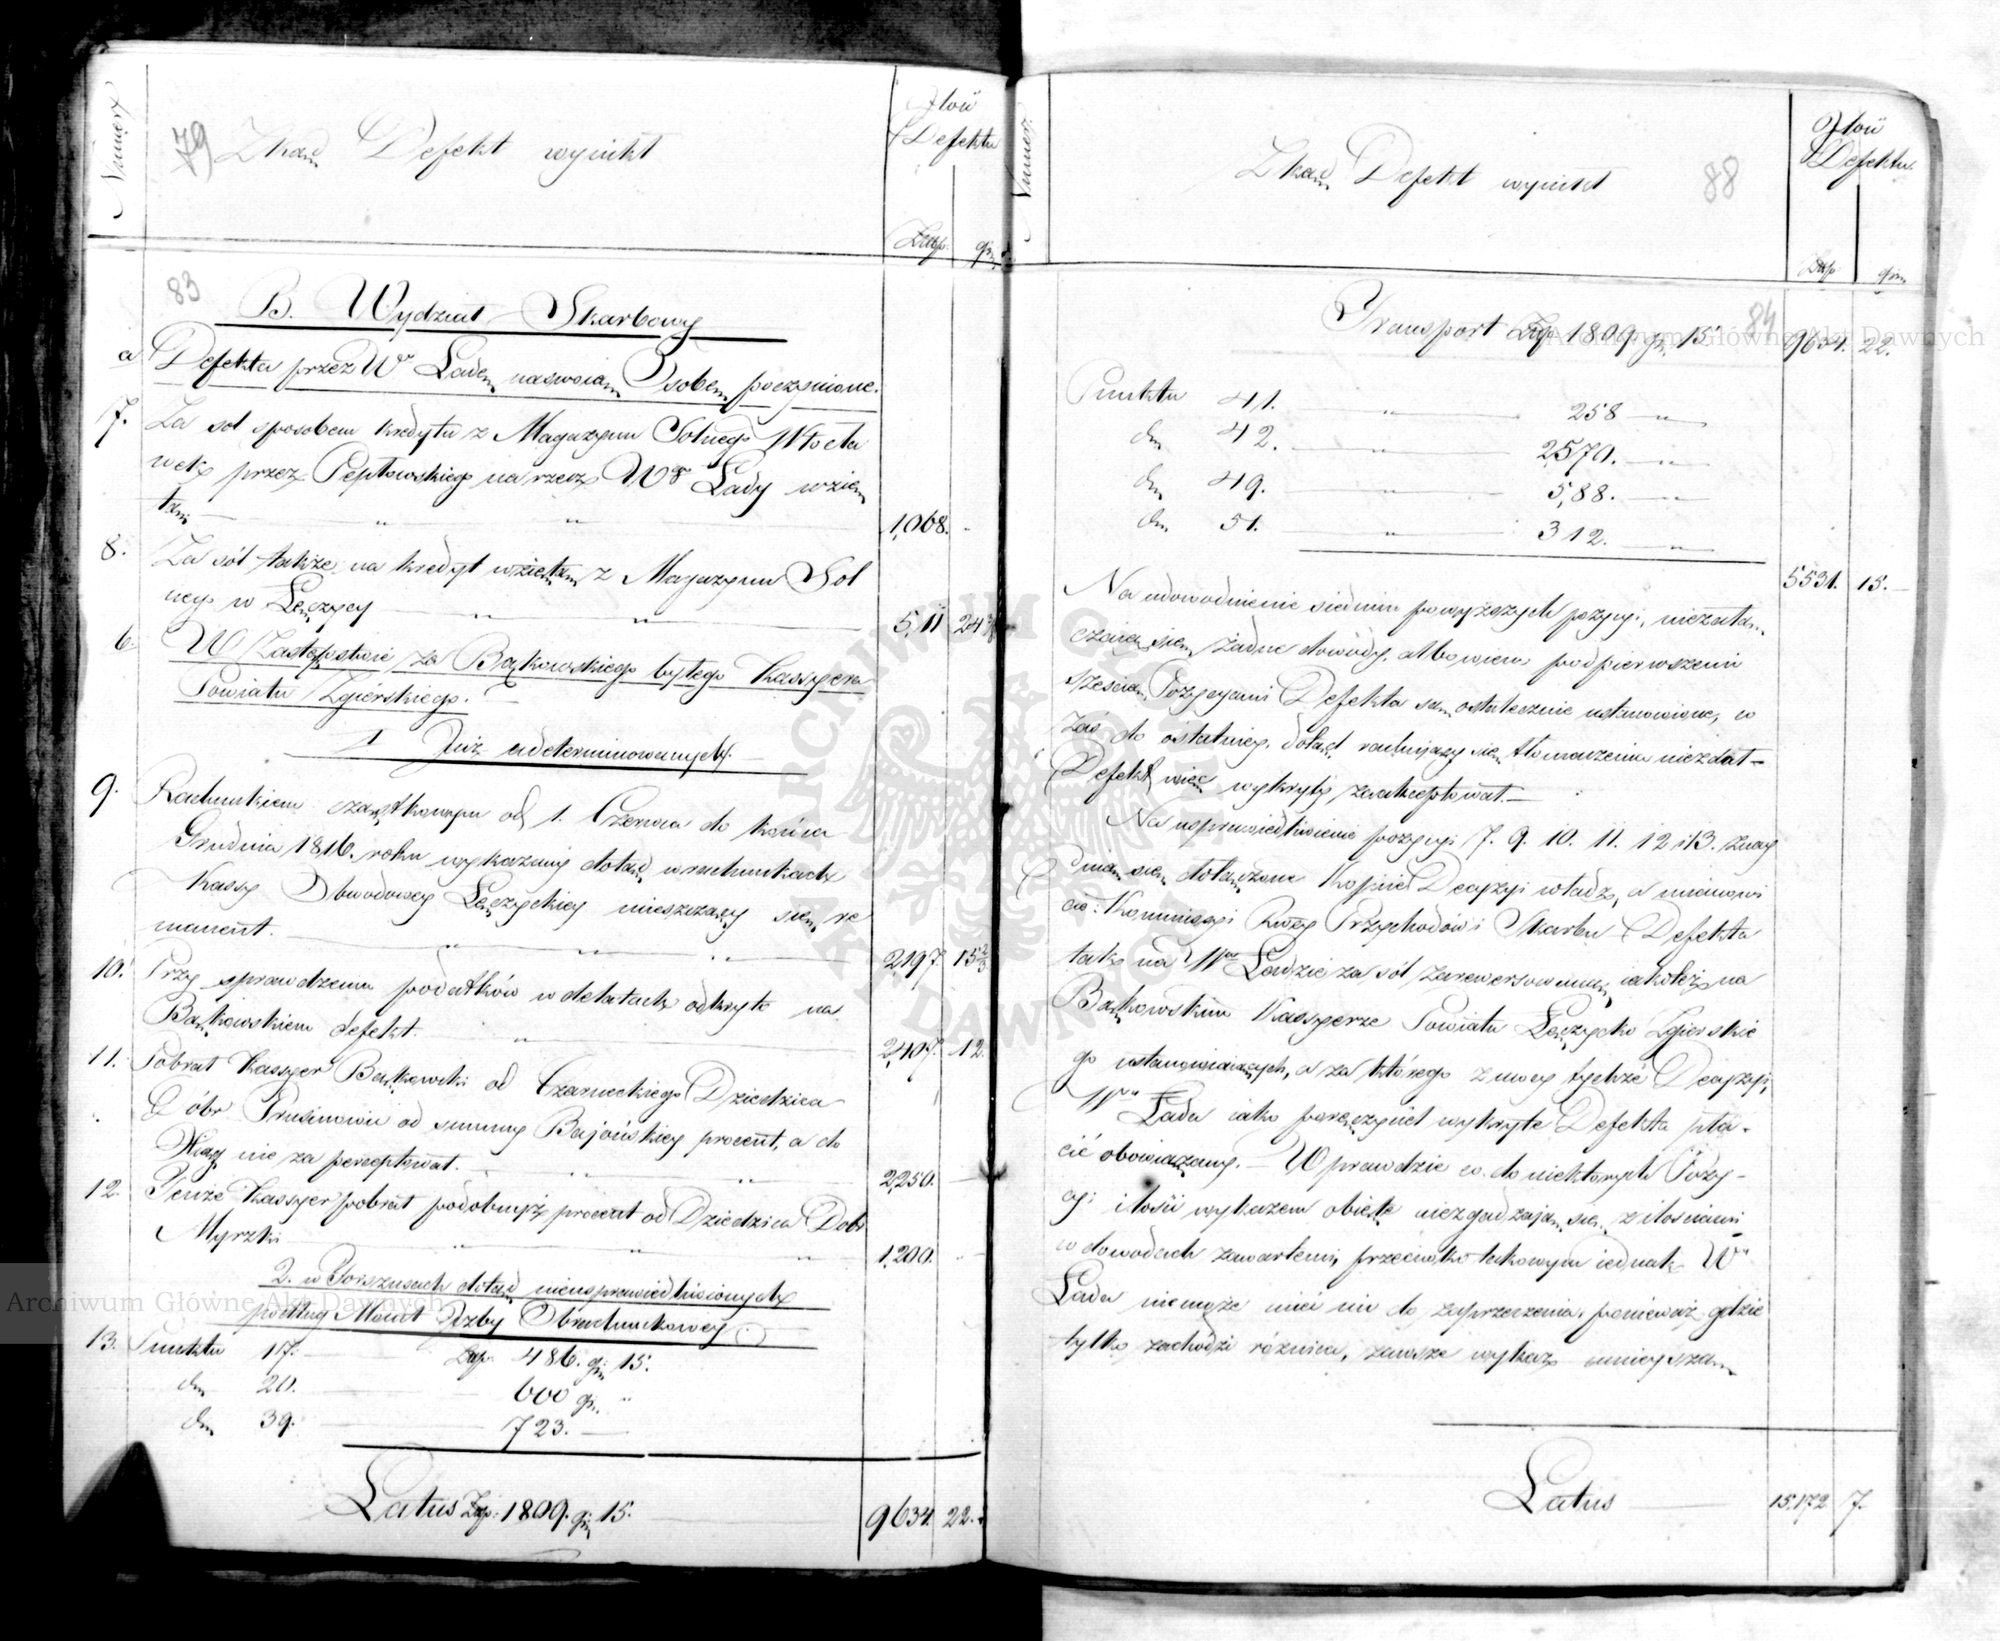 Numer
79 Zkąd Defekt wynikł
Jlość
Defektu
Złłp. gr.
83
B. Wydział Skarbowy
a Defekta przez Wo Ladę na swoią Osobę poczynione.
7. Za sól sposobem kredytu z Magazynu Solnego Włocła
wek przez Peplowskiego na rzecz Wo Lady wzię
tą " " 1,068. -
8. Za sól także na kredyt wziętą z Magazynu Sol
nego w Łęczycy " " 511 24
b. W Zastępstwie za Bąkowskiego byłego Kassyera
Powiatu Zgierskiego.
1 Już udeterminowanych.
9. Rachunkiem cząstkowym od 1. Czerwca do końca
Grudnia 1816. roku wykazany dotąd w rachunkach
Kassy Obwodowey Łęczyckiey mieszczący się re
manent. " " 2197. 15 2/3
10. Przy sprawdzeniu podatków w detalach odkryto na
Bąkowskiem defekt. " 2,407. 12.
11. Pobrał Kassyer Bąkowski od Czarneckiego Dziedzica
Dóbr Prusinowic od summy Bajońskiey procent, a do
Xiąg nie za perceptował. " " 2,250. -
12. Tenże Kassyer pobrał podobnyż procent od Dziedzica Dóbr
Myrzki " " " 1,200. -
2. w Forszusach dotąd nieusprawiedliwionych
podług Monit Jzby Obrachunkowey
13. Punktu 17. Złp. 486. gr. 15.
dto 20. 600 gr. "
dto 39. 723. -
Latus Złp. 1809. gr. 15. 9634. 22.
Numer
Zkąd Defekt wynikł 88
Jlość
Defektu
Złp. gr.
84
Transport Złp. 1809 gr. 15 9634. 22.
Punktu 41. " 258 "
dto 42. 2570. "
dto 49. " 5,88. "
dto 51. " 312. "
5531. 15.
Na udowodnienie siedmiu powyższych pozycyi, nieznłą-
czaią się żadne dowody, albowiem pod pierwszemi
sześcią Pozycyami Defekta są ostatecznie ustanowione, co
zaś do ostatniey, dotąd rachujący się tłomaczenia nie zdał -
Defekt więc wykryty zaakceptował. -
Na usprawiedliwienie pozycyi 7. 9. 10. 11. 12 i 13. znay
duią się dołączone Kopije Decyzyi władz, a mianowi
cie: Kommissyi Rwey Przychodów i Skarbu Defekta
tak na Wo Ladzie za sól zarewersowaną iakoteż na
Bąkowskim Kassyerze Powiatu Łęczycko Zgierskie
go ustanawiaiących, a za którego z mocy tychże Decyzyi,
Wn Lada iako poręczyciel wykryte Defekta pła-
cić obowiązany. - W prawdzie co do niektórych Pozy-
cyi ilości wykazem obięte niezgadzaią się z ilościami
w dowodach zawartemi, przeciwko takowym iednak Wn
Lada niemoże mieć nic do zaprzeczenia, ponieważ gdzie
tylko zachodzi różnica, zawsze wykaz umieyszą
Latus 15,172 7.
Archiwum Główne Akt Dawnych
Archiwum Główne Akt Dawnych
ARCHIWUM GŁÓWNE AKT DAWNYCH